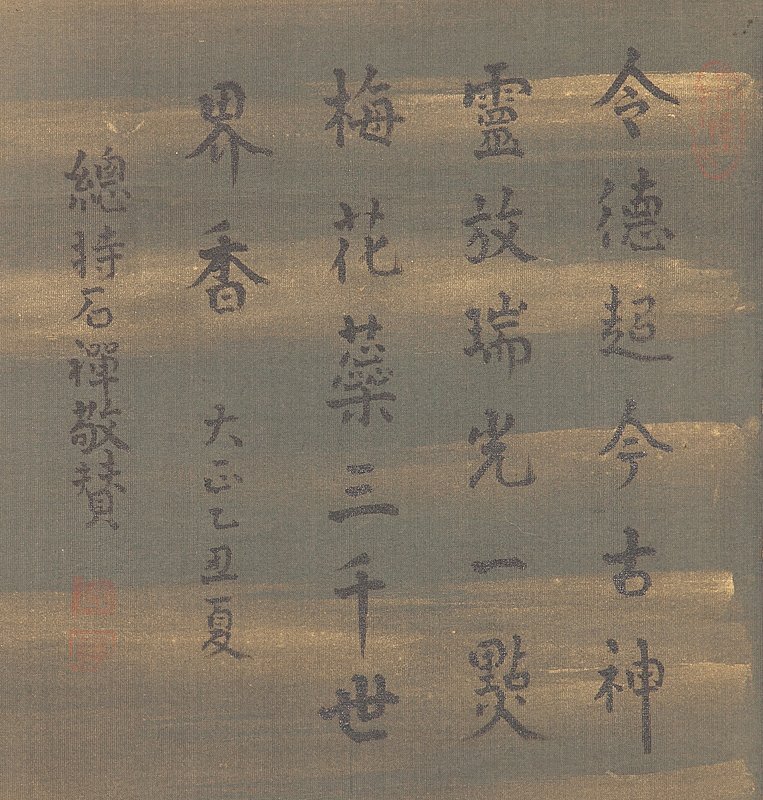 令德超今古神
靈放瑞光一點
梅花蘂三千世
界香 大正乙丑夏
總持石禪敬贊